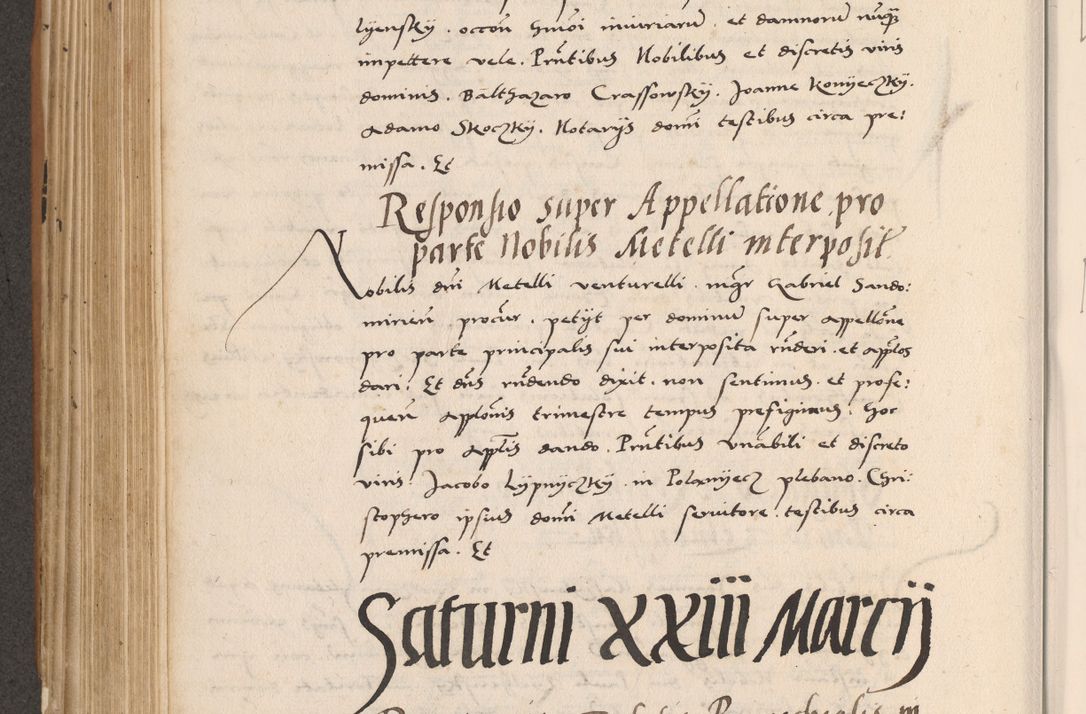 lyensky . occoñ hmõi iniuriarũ . et damnorũ nũqȝ
impettere vele . Prñtibus Nobilibus et discretis viris
dominis . Balthazaro Crassowsky . Joanne Konyeczky .
Adamo Skoczky . Notarijs domĩ testibus circa pre:
missa . Et
Responsio super Appellatione pro
parte Nobilis Metelli interposit
Nobilis dñi Metelli venturelli . mgr Gabriel Sando:
mirieñ . procur . petijt per dominũ super appellõne
pro parte principalis sui interposita rñderi . et aptos
dari . Et dñs rñdendo dixit . non sentimus . et prose:
queñ applonis trimestre tempus prefigimus . hoc
sibi pro aptis dando . Prñtibus vnãbili et discreto
viris . Jacobo Lypnyczky . in Polanyecz plebano . Chri:
stophero ipsius domĩ Metelli seruitore . testibus circa
premissa . Et
Saturni XXIII Marcij